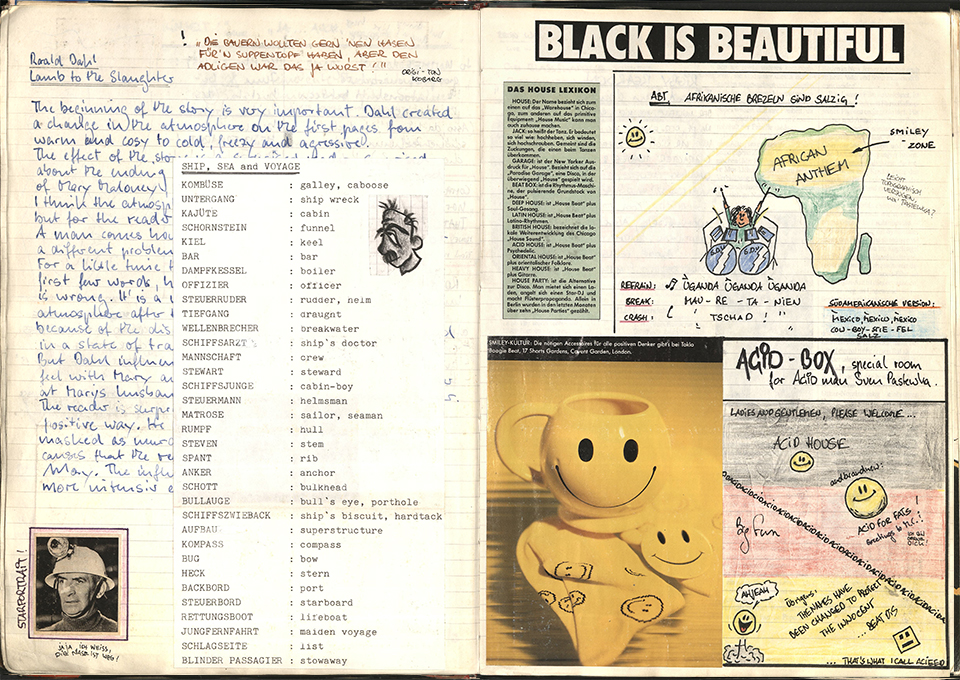 ! „DIE BAUERN WOLLTEN GERN 'NEN HASEN
FÜR'N SUPPENTOPF HABEN, ABER DEN
ADLIGEN WAR DAS JA WURST!"
Roald Dahl
Lamb to the Slaughter
The beginning of the story is very important. Dahl created
a change in the atmosphere on the first pages from
warm and cosy to cold, freezy and agressive.
The effect of the
about the ending
of Mary Maloney.
I think the atmosp
but for the reader
A man comes ho
a different problem
For a little time
first few words, h
is wrong. It is a
atmosphere after
because of the dis
in a state of tra
But Dahl influen
feel with Mary an
at Mary's husban
The reader is surpr
positive way. He
masked as
causes that the re
Mary. The influ
more intensiv
SHIP, SEA and VOYAGE
KOMBÜSE : galley, caboose
UNTERGANG : ship wreck
KAJÜTE : cabin
SCHORNSTEIN : funnel
KIEL : keel
BAR : bar
DAMPFKESSEL : boiler
OFFIZIER : officer
STEUERRUDER : rudder, helm
TIEFGANG : draugnt
WELLENBRECHER : breakwater
SCHIFFSARZT : ship's doctor
MANNSCHAFT : crew
STEWART : steward
SCHIFFSJUNGE : cabin-boy
STEUERMANN : helmsman
MATROSE : sailor, seaman
RUMPF : hull
STEVEN : stem
SPANT : rib
ANKER : anchor
SCHOTT : bulkhead
BULLAUGE : bull's eye, porthole
SCHIFFSZWIEBACK : ship's biscuit, hardtack
AUFBAU : superstructure
KOMPASS : compass
BUG : bow
HECK : stern
BACKBORD : port
STEUERBORD : starboard
RETTUNGSBOOT : lifeboat
JUNGFERNFAHRT : maiden voyage
SCHLAGSEITE : list
BLINDER PASSAGIER : stowaway
STARPORTRAIT!
JA JA ICH WEISS,
BLACK IS BEAUTIFUL
DAS HOUSE LEXIKON
HOUSE: Der Name bezieht sich zum
einen auf das „Warehouse" in Chica-
go, zum anderen auf das primitive
Equipment: „House Music" kann man
auch zuhause machen.
JACK: so heißt der Tanz. Er bedeutet
so viel wie: hochheben, sich winden,
sich hochschrauben. Gemeint sind die
Zuckungen, die einen beim Tanzen
überkommen.
GARAGE: ist der New Yorker Aus-
druck für „House". Bezieht sich auf die
„Paradise Garage", eine Disco, in der
überwiegend „House" gespielt wird.
BEAT BOX: ist die Rhythmus-Maschi-
ne, der pulsierende Grundstock von
„House".
DEEP HOUSE: ist „House Beat" plus
Soul-Gesang.
LATIN HOUSE: ist „House Beat" plus
Latino-Rhythmen.
BRITISH HOUSE: bezeichnet die lo-
kale Weiterentwicklung des Chicago
„House Sound".
ACID HOUSE: ist „House Beat" plus
Psychedelic.
ORIENTAL HOUSE: ist „House Beat"
plus orientalischer Folklore.
HEAVY HOUSE: ist „House Beat"
plus Gitarre.
HOUSE PARTY: ist die Alternative
zur Disco. Man mietet sich einen La-
den, angelt sich einen Star-DJ und
macht Flüsterpropaganda. Allein in
Berlin wurden in den letzten Monaten
über zehn „House Parties" gezählt.
ABT. AFRIKANISCHE BREZELN SIND SALZIG!
SMILEY-
ZONE
AFRICAN
ANTHEM
REFRAIN: UGANDA UGANDA UGANDA
BREAK: MAU - RE - TA - NIEN
CRASH: TSCHAD !
SÜDAMERIKANISCHE VERSION:
MEXICO, MEXICO, MEXICO
COW-BOY-STIE-FEL
SALZ
SMILEY-KULTUR: Die nötigen Accessoires für alle positiven Denker gibt's bei Tokio
Boogie Beat, 17 Shorts Gardens, Covent Garden, London.
ACID-BOX, special room
for Acid man Sven Pastewka.
LADIES AND GENTLEMEN, PLEASE WELCOME...
ACID HOUSE
and brandnew:
ACID FOR FATS
Greetings to N.C.!
ACIDACIDACIDACIDACIDACIDACIDACIDACID
Big Fun
AH YEAH
Übrigens:
THE NAMES HAVE
BEEN CHANGED TO PROTECT
THE INNOCENT
... BEAT DIS
... THAT'S WHAT I CALL ACIEEED